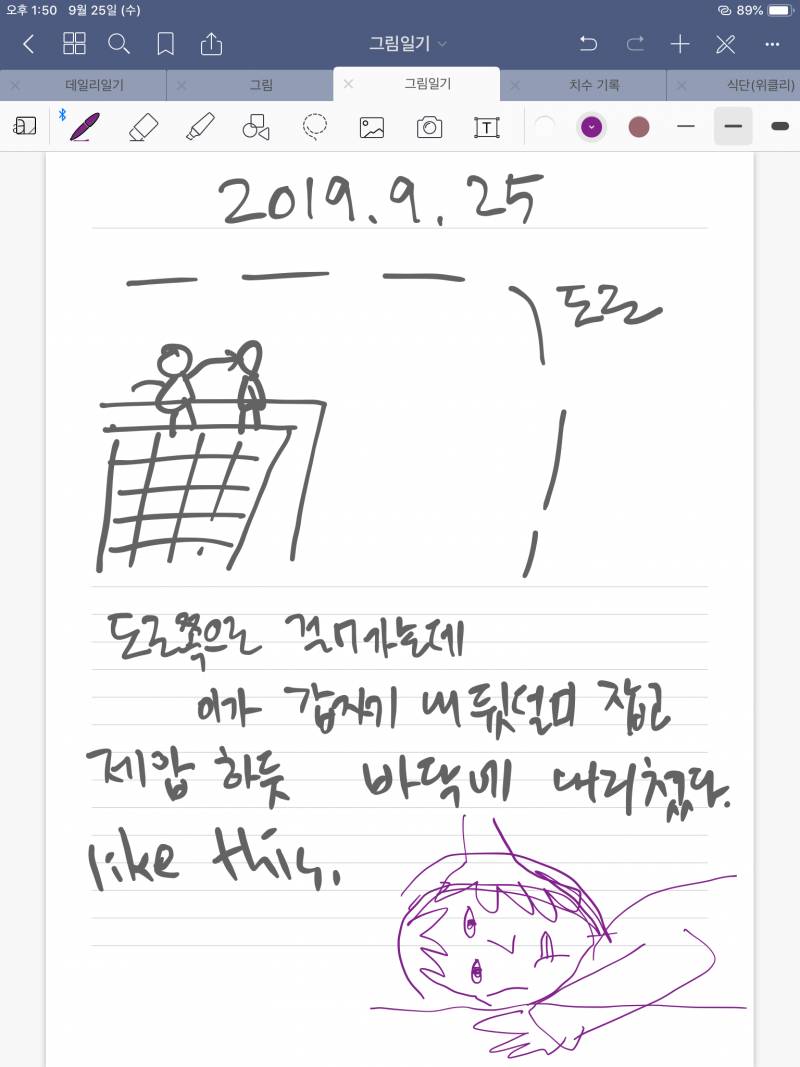 오후 1:50 9월 25일 (수) 89%
그림일기
데일리일기 그림 그림일기 치수 기록 식단(위클리)
2019.9.25
도로
도로쪽으로 걸어가는데
이가 갑자기 내 뒷덜미 잡고
제압 하듯 바닥에 내리쳤다.
like this.